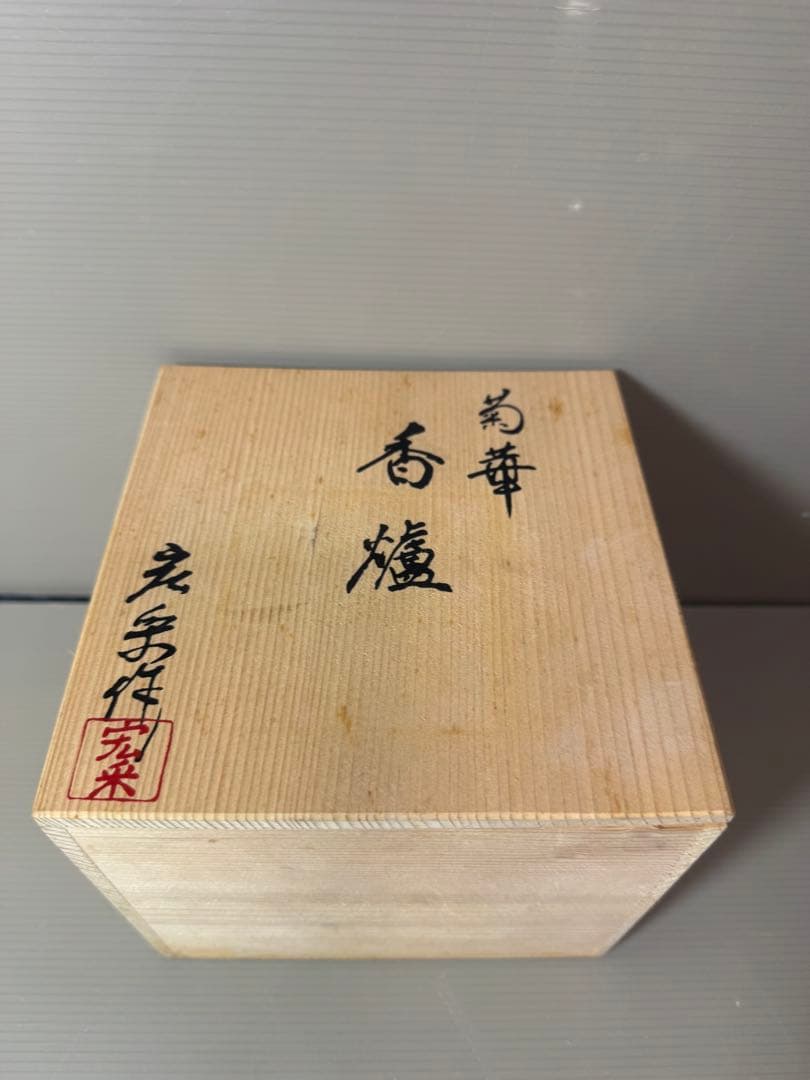 菊華
香爐
宏采作
宏采